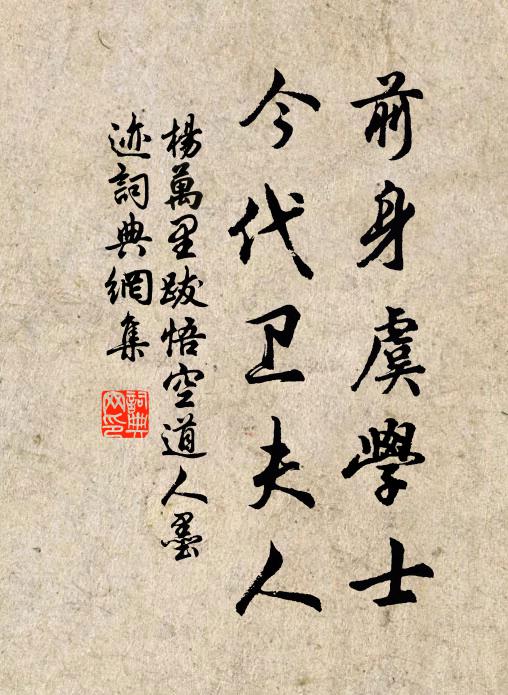 前身虞學士
今代卫夫人
楊萬里跋悟空道人墨
迹詞典網集
詞典网印